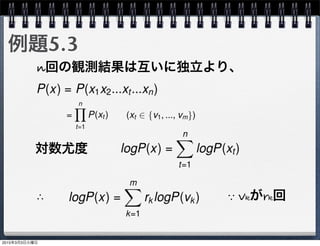 例題5.3
n回の観測結果は互いに独立より、
P(x) = P(x₁x₂...xₜ...xₙ)
= ∏ₜ₌₁ⁿ P(xₜ) (xₜ ∈ {v₁, ..., vₘ})
対数尤度 logP(x) = ∑ₜ₌₁ⁿ logP(xₜ)
∴ logP(x) = ∑ₖ₌₁ᵐ rₖlogP(vₖ) ∵ vₖがrₖ回